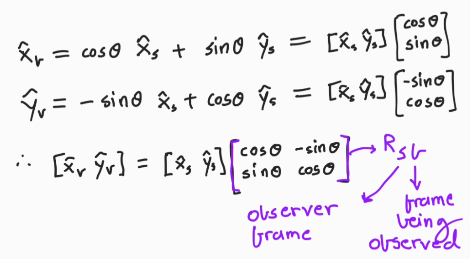 x̂r = cosθ x̂s + sinθ ŷs = [x̂s ŷs] [cosθ sinθ]
ŷr = - sinθ x̂s + cosθ ŷs = [x̂s ŷs] [-sinθ cosθ]
∴ [x̂r ŷr] = [x̂s ŷs] [cosθ -sinθ sinθ cosθ] → Rsb
observer frame
frame being observed